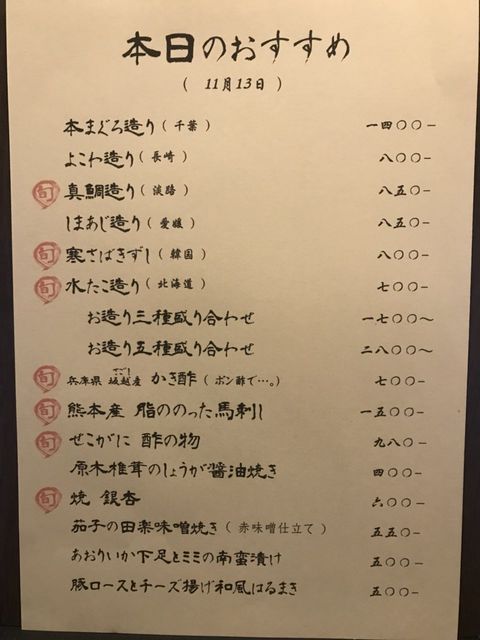 本日のおすすめ
( 11月13日 )
本まぐろ造り ( 千葉 ) 一四〇〇-
よこわ造り ( 長崎 ) 八〇〇-
旬 真鯛造り ( 淡路 ) 八五〇-
しまあじ造り ( 愛媛 ) 八五〇-
旬 寒さばきずし ( 韓国 ) 八〇〇-
旬 水たこ造り ( 北海道 ) 七〇〇-
お造り三種盛り合わせ 一七〇〇~
お造り五種盛り合わせ 二八〇〇~
旬 兵庫県 坂越産 かき酢 ( ポン酢で…。) 七〇〇-
旬 熊本産 脂ののった馬刺し 一五〇〇-
旬 せこがに 酢の物 九八〇-
原木椎茸のしょうが醤油焼き 四〇〇-
旬 焼 銀杏 六〇〇-
茄子の田楽味噌焼き ( 赤味噌仕立て ) 五五〇-
あおりいか下足とミミの南蛮漬け 五〇〇-
豚ロースとチーズ揚げ和風はるまき 五〇〇-